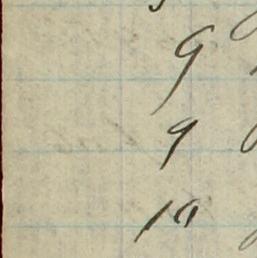 9
9
10